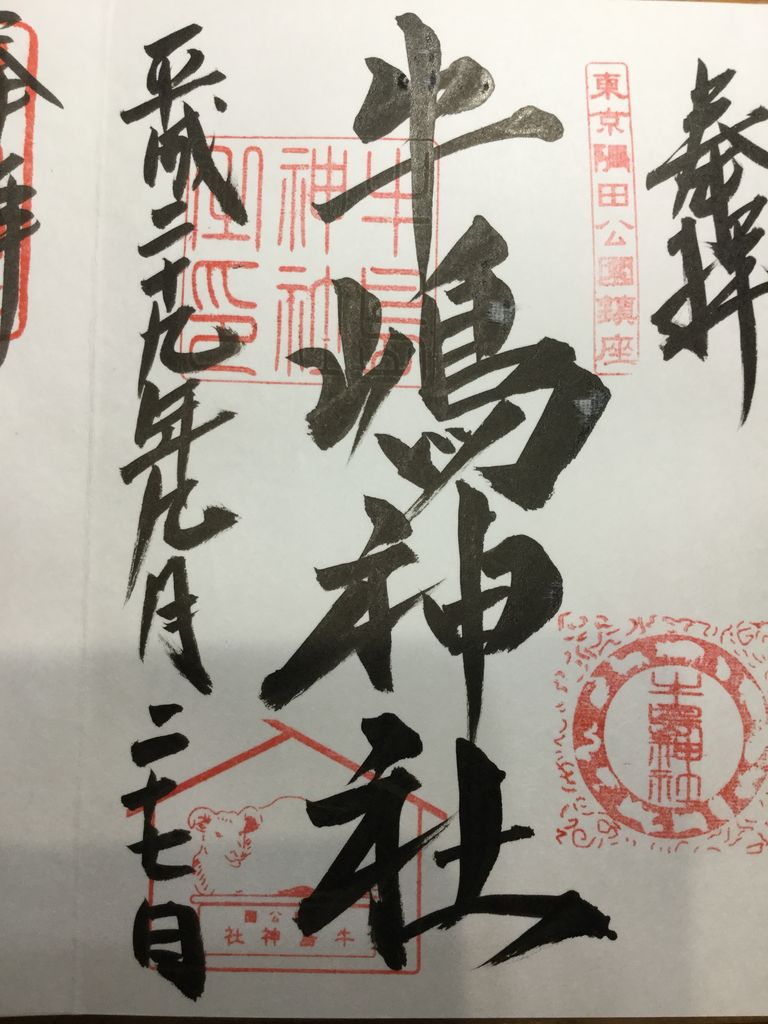 奉拝
東京隅田公園鎮座
牛嶋神社
牛嶋神社
牛嶋神社之印
平成二十九年九月二十七日
公園
牛嶋神社
奉拝